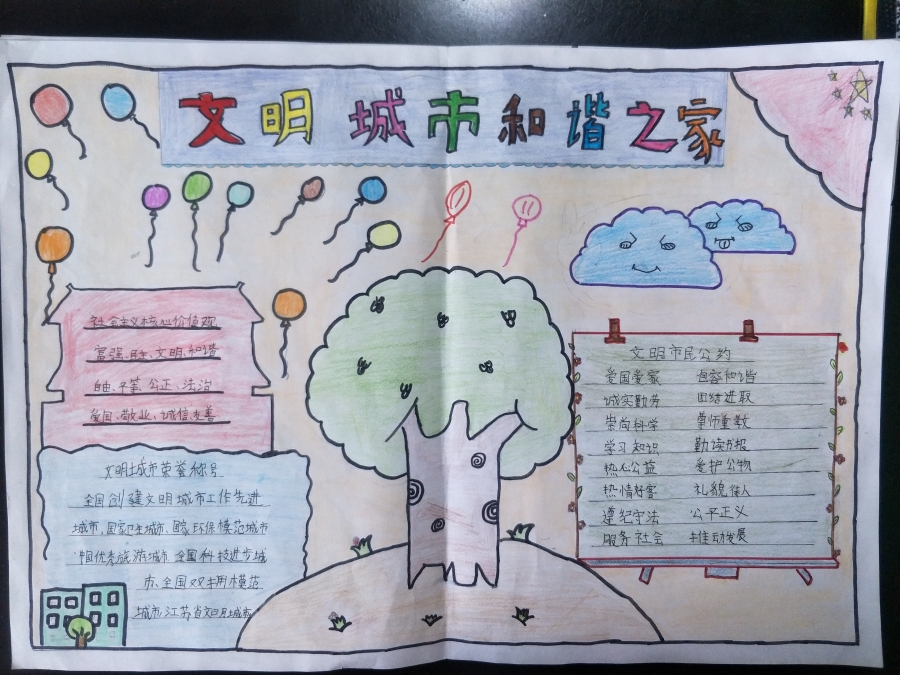 文明城市和谐之家
社会主义核心价值观
富强、民主、文明、和谐
自由、平等、公正、法治
爱国、敬业、诚信友善
文明城市荣誉称号
全国创建文明城市工作先进
城市、国家卫生城市、国家环保模范城市
中国优秀旅游城市 全国科技进步城
市、全国双拥模范
城市江苏省文明城市
文明市民公约
爱国爱家 包容和谐
诚实勤劳 团结进取
崇尚科学 尊师重教
学习知识 勤读书报
热心公益 爱护公物
热情好客 礼貌待人
遵纪守法 公平正义
服务社会 推动发展